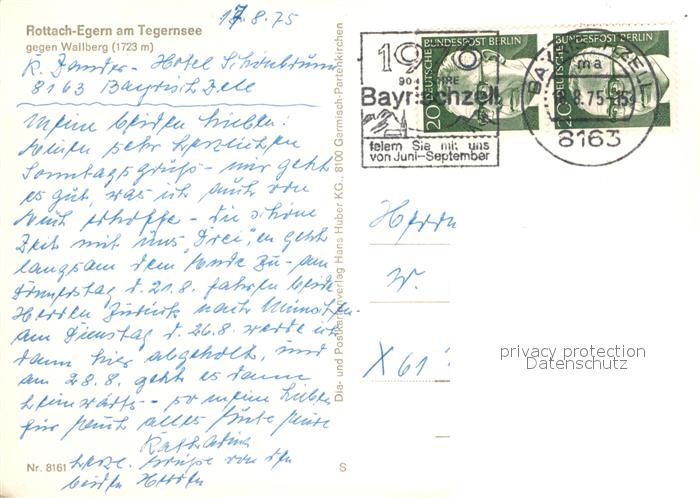 17.8.75
Rottach-Egern am Tegernsee
gegen Wallberg (1723 m)
Hotel Schönbrunn
8163 Bayrisch Zell
Meine beiden Lieben:
Meinen sehr herzlichen
Sonntagsgruß - mir geht
es gut, was ich auch von
Euch erhoffe - die schöne
Zeit mit uns "Drei" en geht
langsam dem Ende zu - am
Donnerstag d. 21.8. fahren beide
Herren zurück nach
am Dienstag d. 26.8. werde ich
dann hier abgeholt, und
am 28.8. geht es dann
heimwärts - so meine Lieben
für Euch alles Gute Eure
Katharina
herzl. Grüße von den
beiden Herren
Nr. 8161
S
Dia- und Postkartenverlag Hans Huber KG., 8100 Garmisch-Partenkirchen
900 JAHRE
Bayrischzell
feiern Sie mit uns
von Juni-September
DEUTSCHE BUNDESPOST BERLIN
20
DEUTSCHE BUNDESPOST BERLIN
20
BAYRISCHZELL
ma
8.75-15
8163
Herrn
W.
X 61
privacy protection
Datenschutz